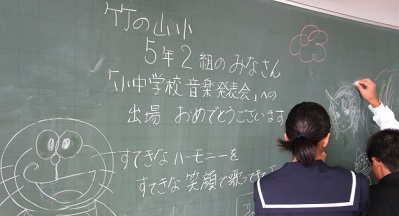 竹の山小
5年2組のみなさん
「小中学校 音楽発表会」への
出場 おめでとうございます
すてきなハーモニーを
すてきな笑顔で歌って